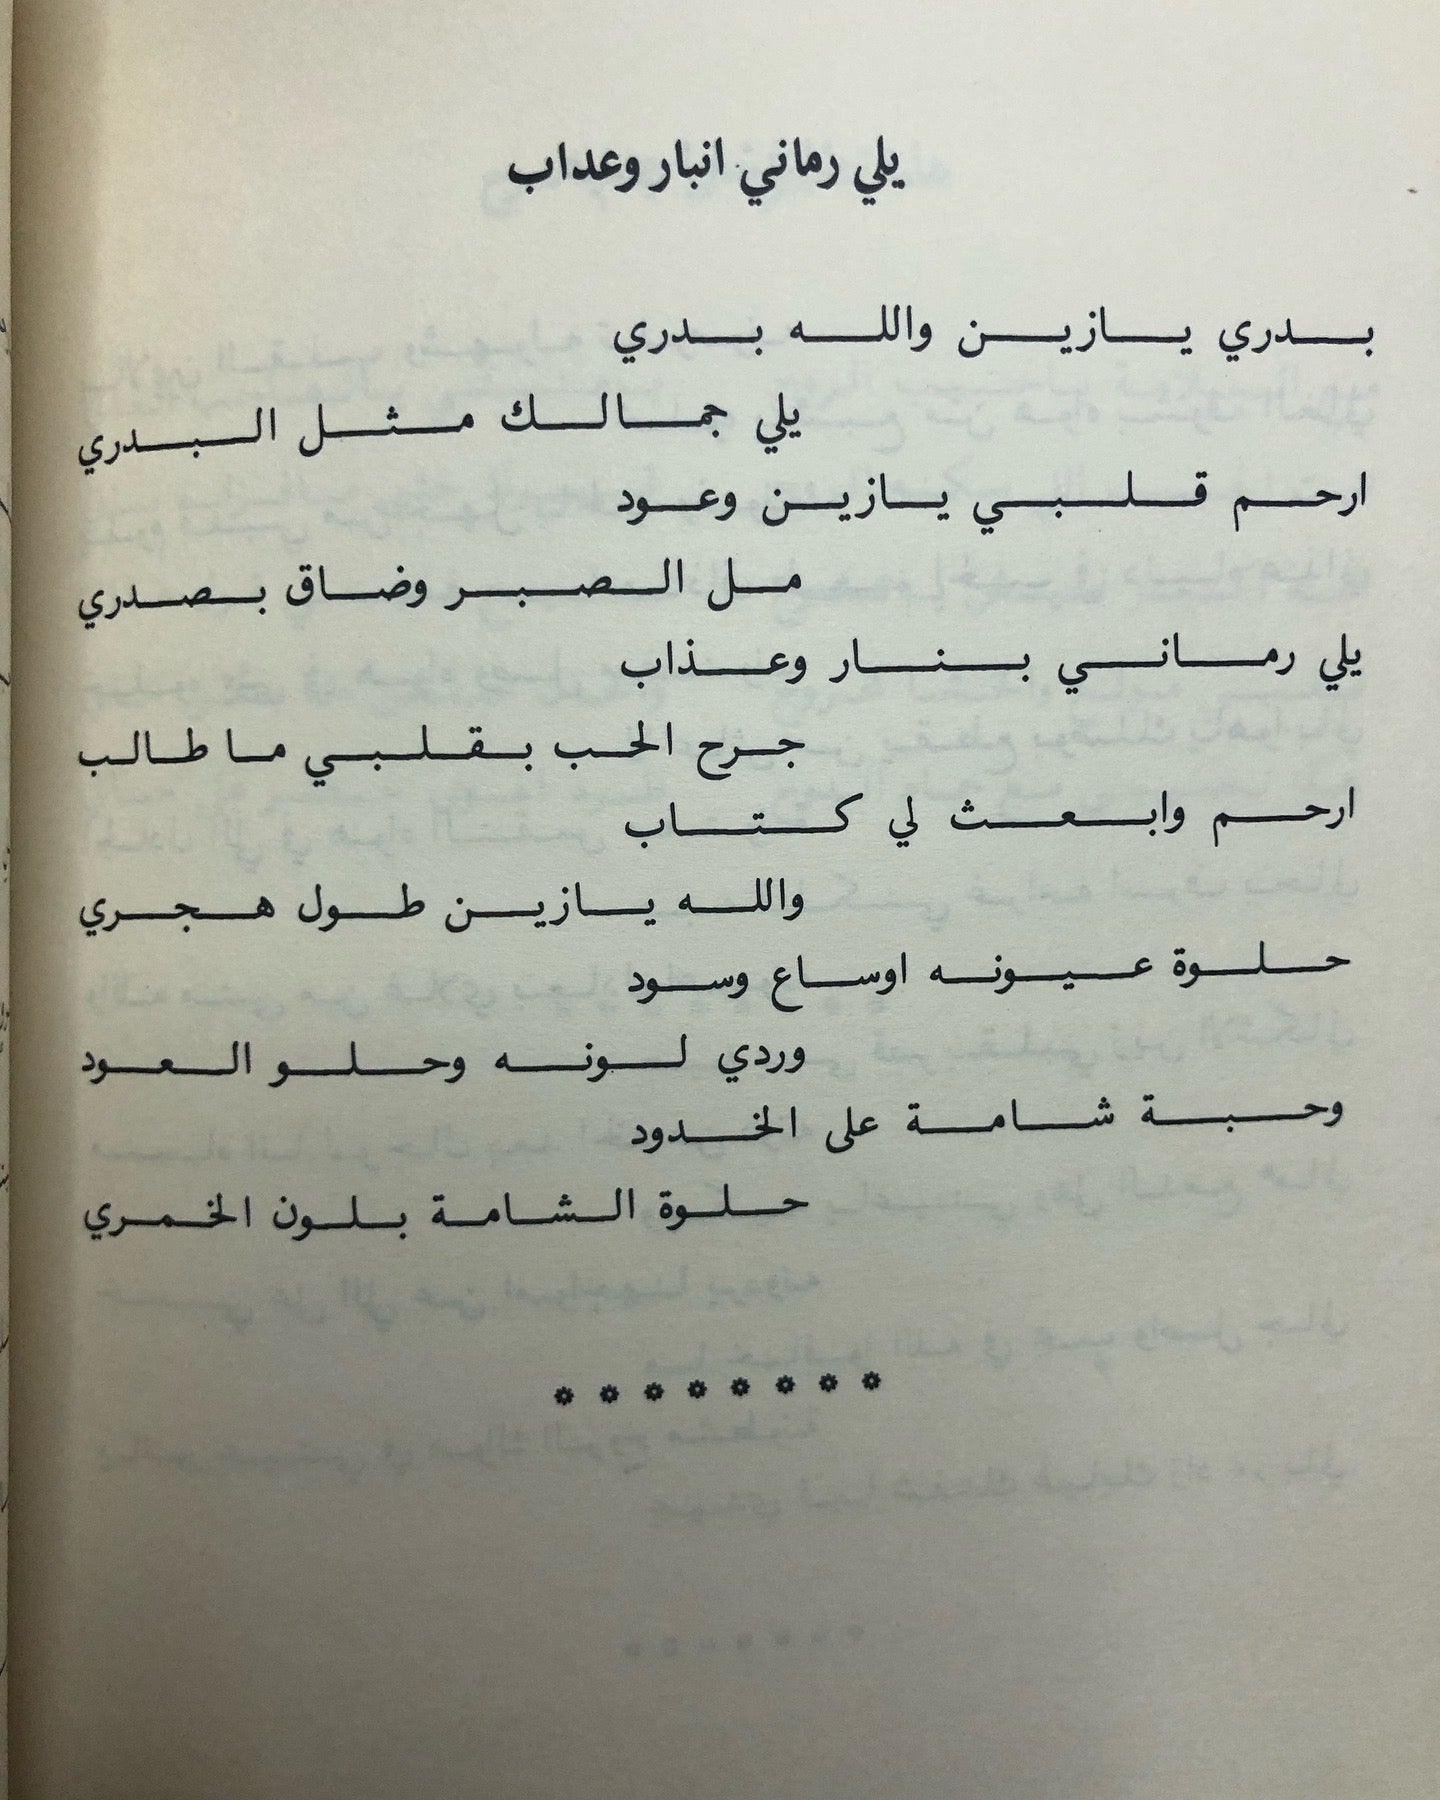 يلي رماني انبار وعداب
بدري يازين والله بدري
يلي جمالك مثل البدري
ارحم قلبي يازين وعود
مل الصبر وضاق بصدري
يلي رماني بنار وعذاب
جرح الحب بقلبي ما طالب
ارحم وابعث لي كتاب
والله يازين طول هجري
حلوة عيونه اوساع وسود
وردي لونه وحلو العود
وحبة شامة على الخدود
حلوة الشامة بلون الخمري